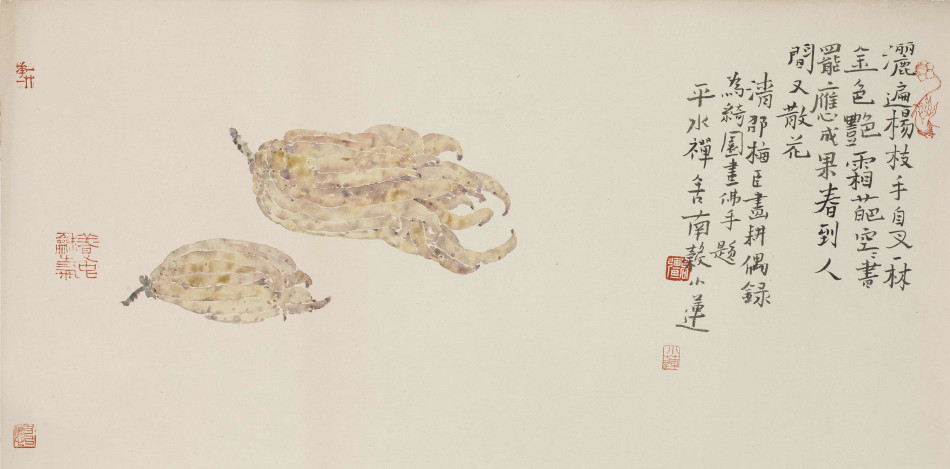 灑遍楊枝手自叉一林
金色艷霜葩空空書
罷應成果春到人
間又散花
清邵梅臣畫耕偶錄
為綺園畫佛手題
平水禪舍南毅小蓮